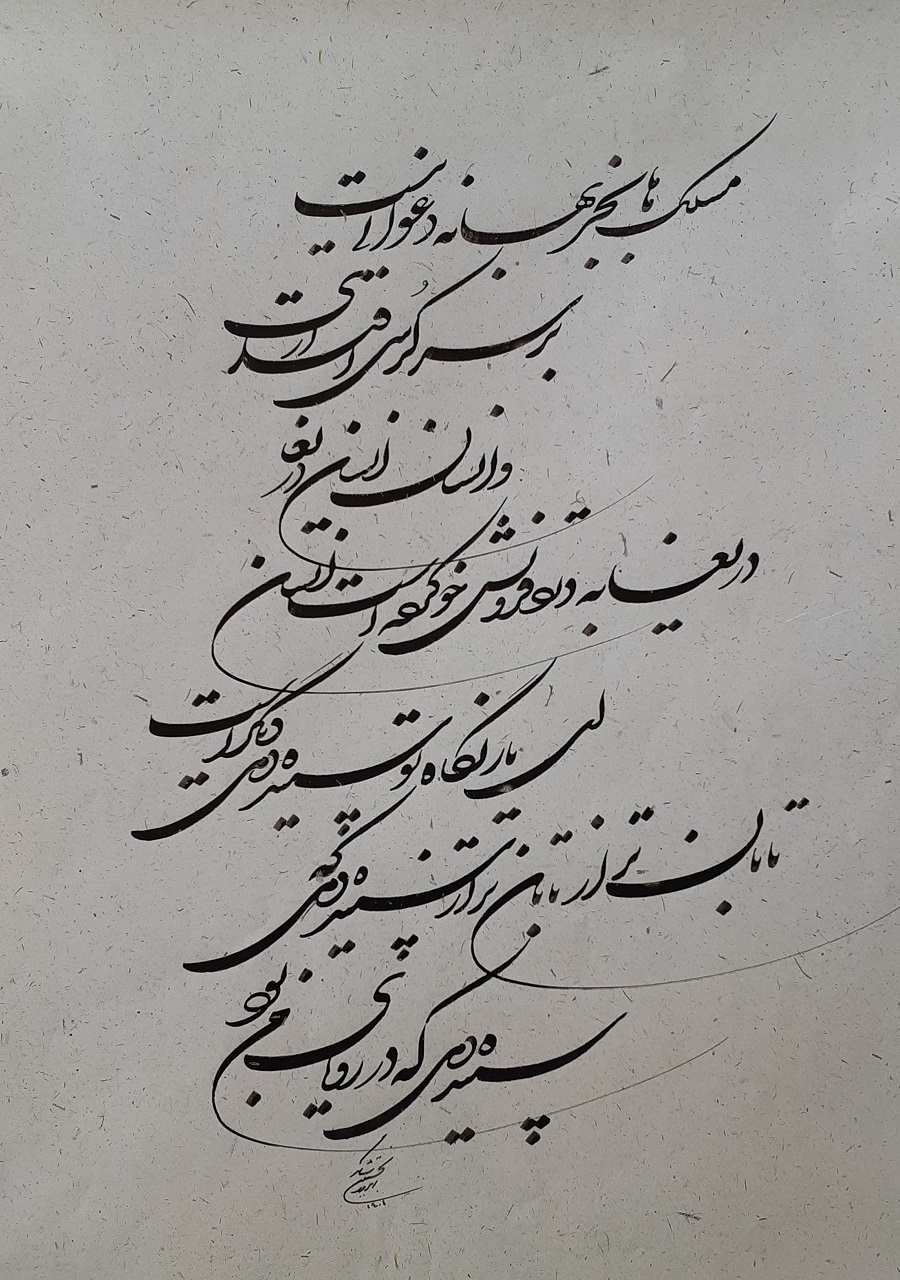 مسلک ها بجز بهانه دعوایی نیست
بر سر کرسی اقتداری
و انسان انسان دریغا
دریغا به درد قرونش خو کرده است انسان
ای یار نگاه تو سپیده دمی دیگر است
تابان تر از تابان تر از سپیده دمی که
سپیده دمی که در رویای من بود
۱۴۰۱